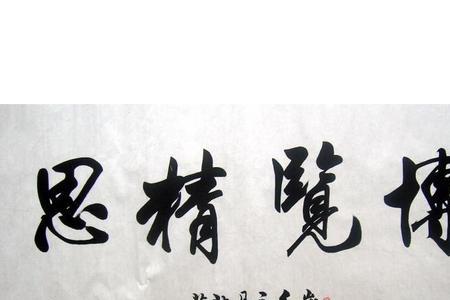 博覽精思